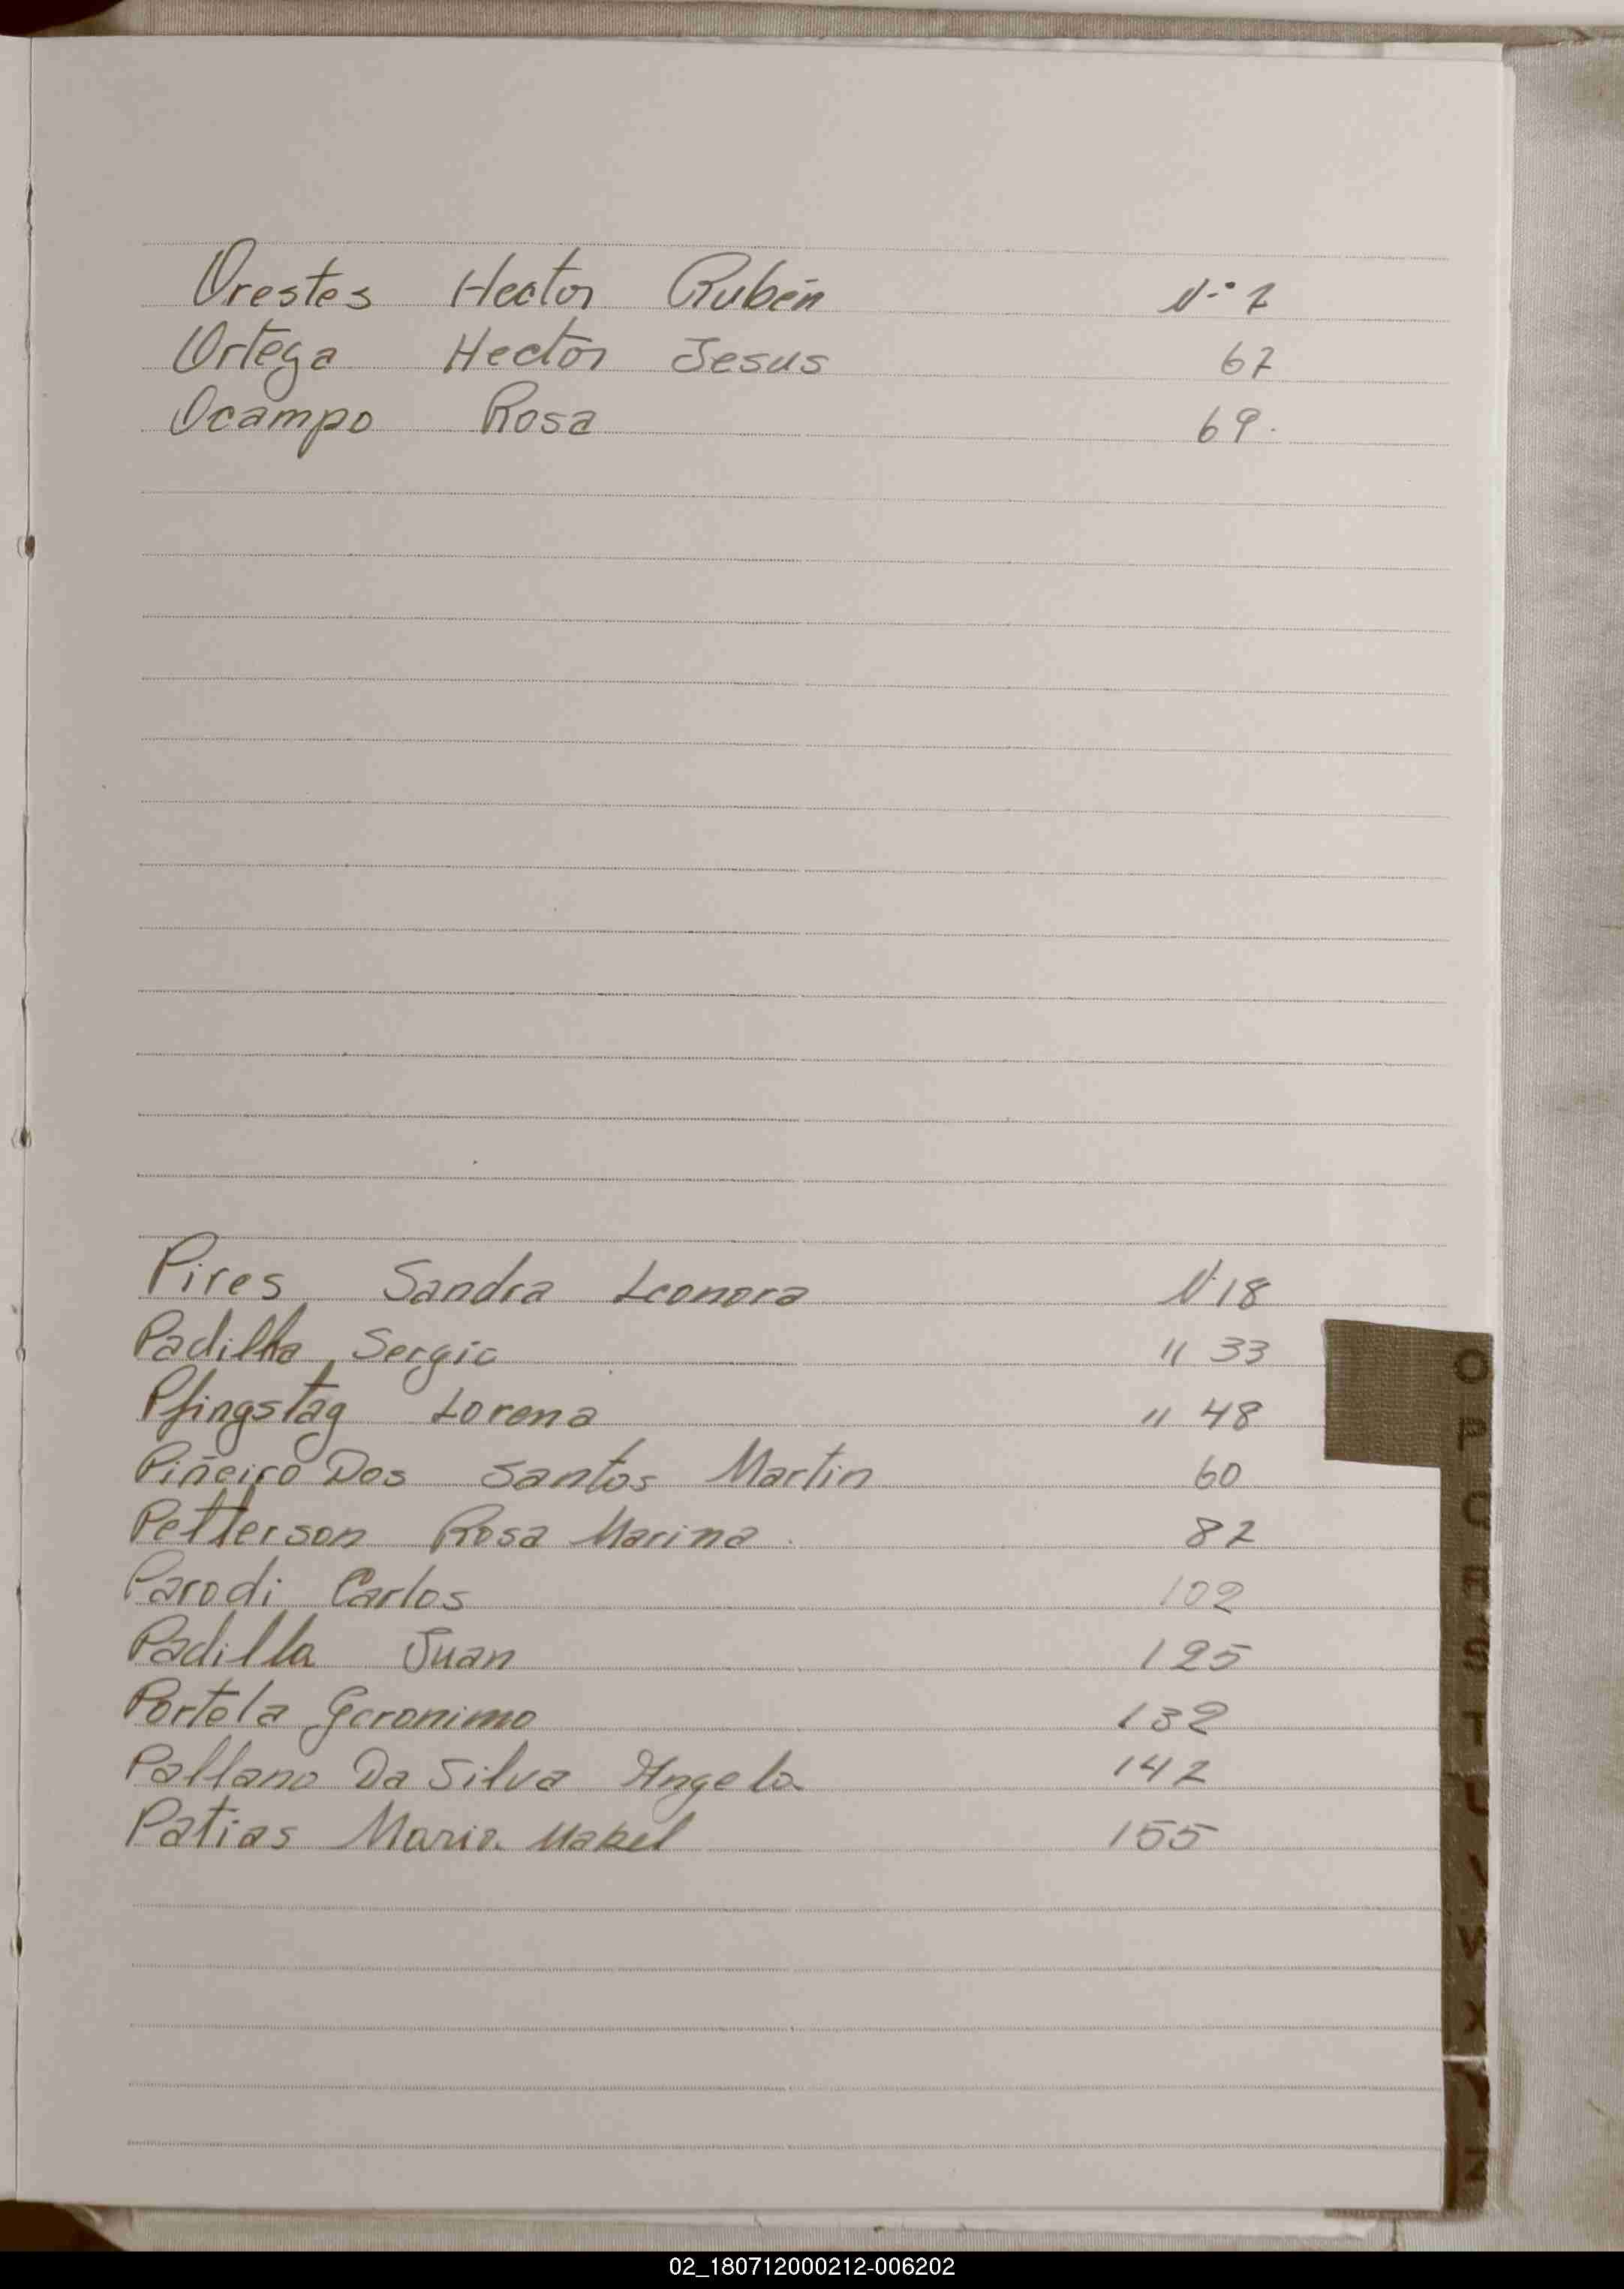 Orestes Hector Rubén N.° 7
Ortega Hector Jesus 67
Ocampo Rosa 69.
Pires Sandra Leonora N. 18
Padilha, Sergio " 33
Pfingstag Lorena " 48
Piñeiro Dos Santos Martin 60
Petterson Rosa Marina. 87
Parodi Carlos 102
Padilla Juan 125
Portela Geronimo 132
Pallano Da Silva Angela 147
Patias Maria Mabel 155
O
P
Q
R
S
T
U
V
W
X
Y
Z
02_180712000212-006202